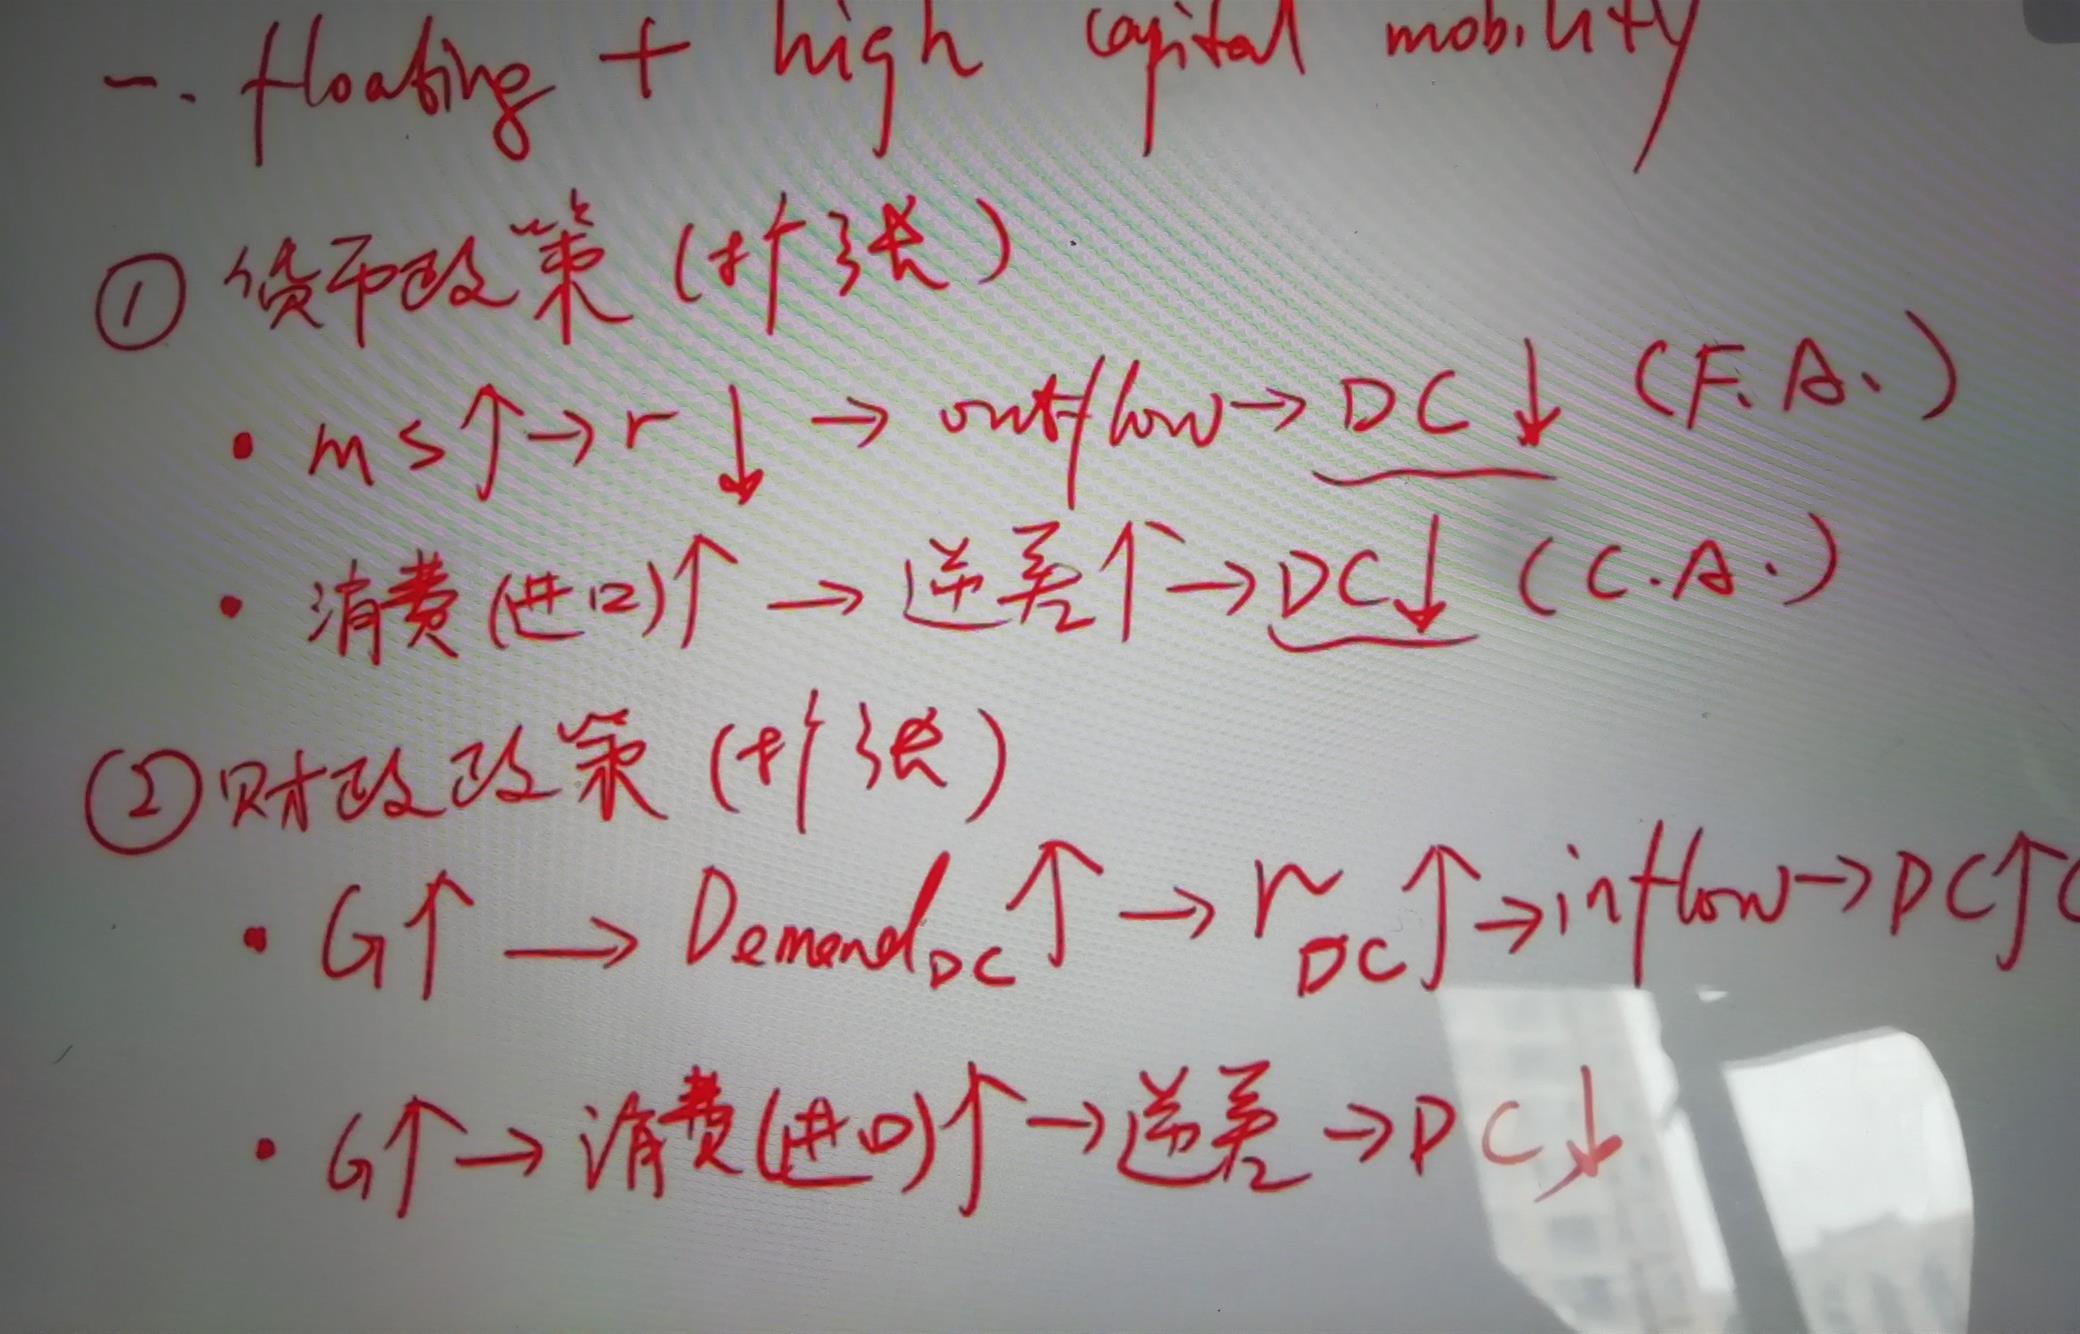 一. floating + high capital mobility
① 货币政策 (扩张)
• ms↑→r↓→outflow→DC↓ (F.A.)
• 消费(进口)↑→逆差↑→DC↓ (C.A.)
② 财政政策 (扩张)
• G↑→Demand DC↑→r DC↑→inflow→DC↑(
• G↑→消费(进口)↑→逆差→DC↓